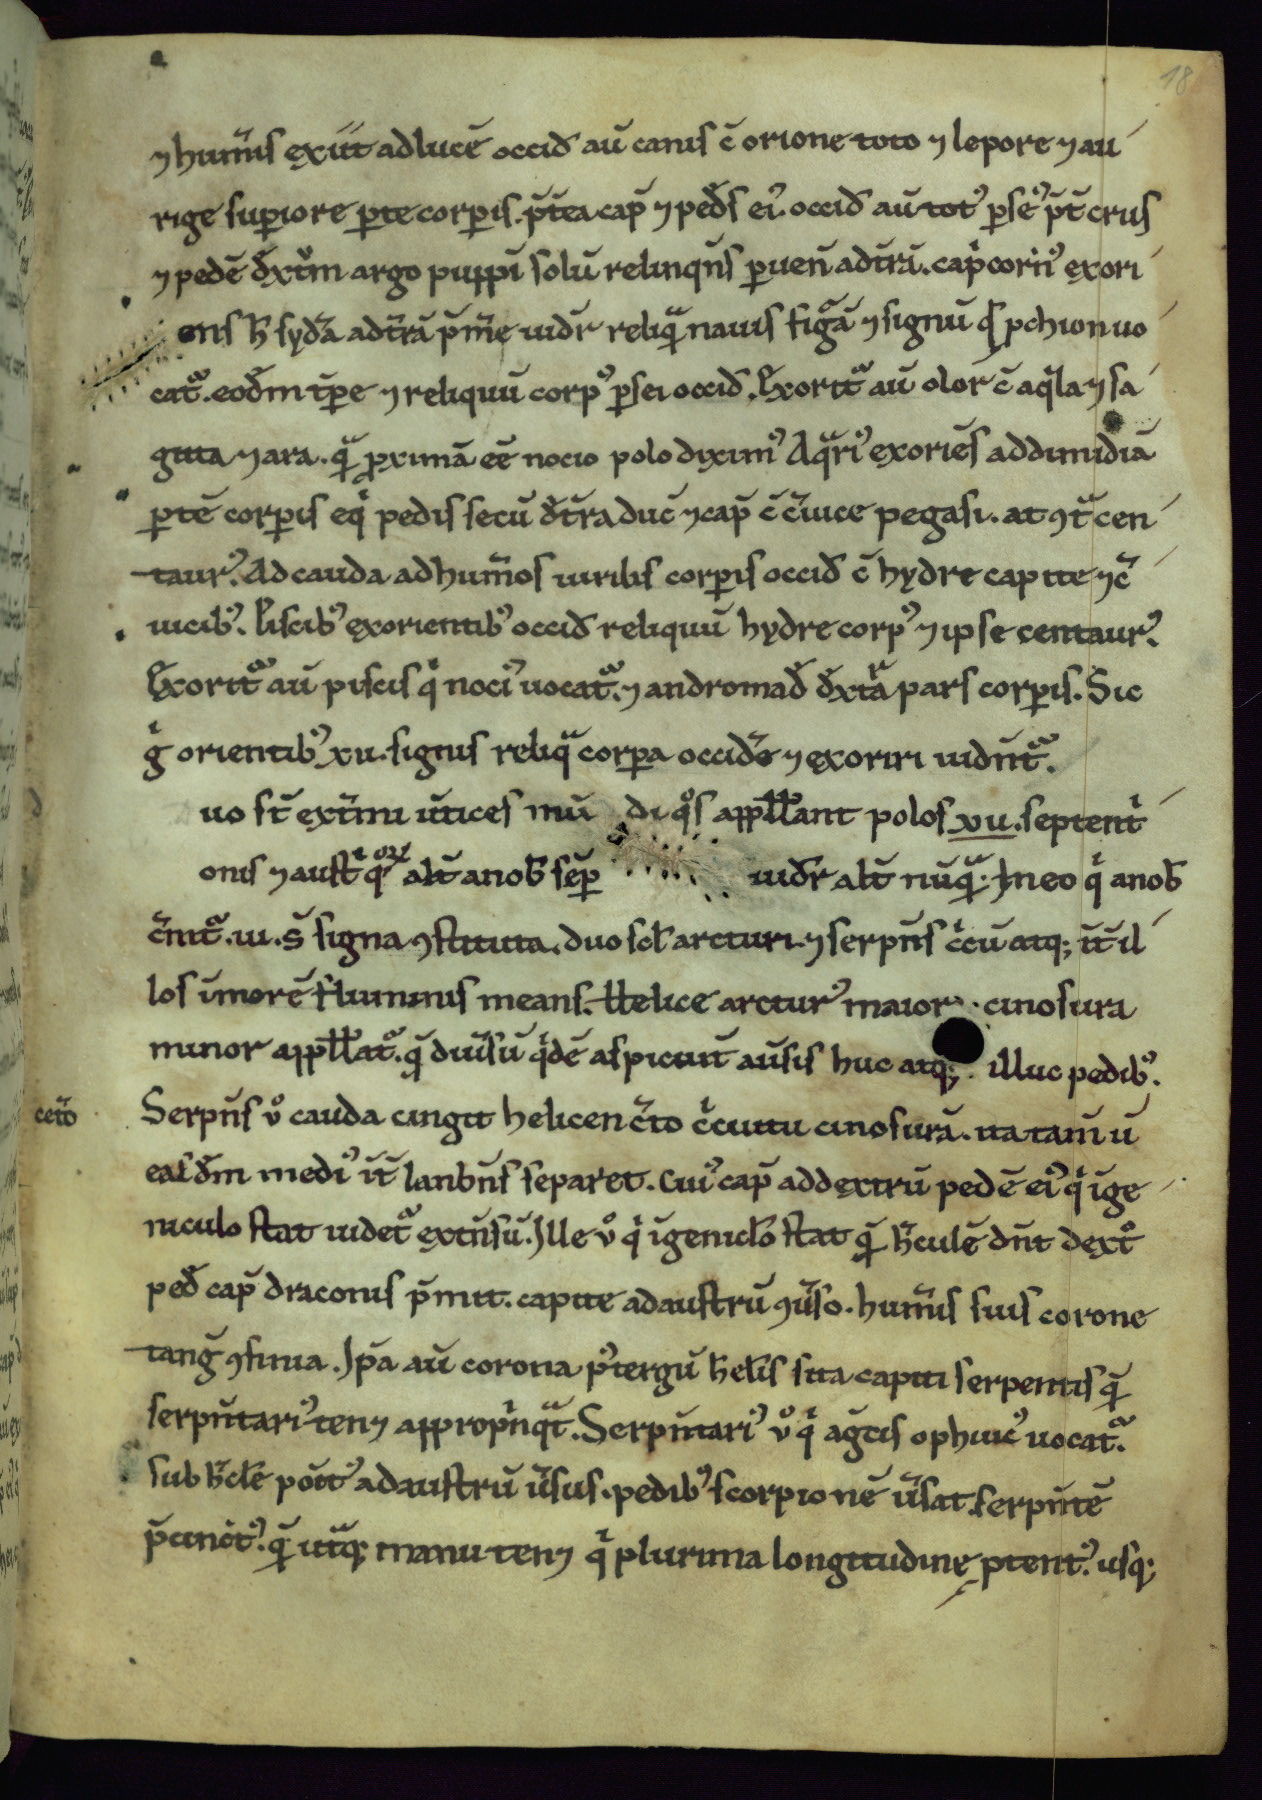 18
⁊ humĩs exiit ad lucẽ occid̃ aũ canis c̃ orione toto ⁊ lepore ⁊ au
rige suꝑiore ꝑte corꝑis. p̃tea cap̃ ⁊ ped̃s eiꝰ. occid̃ aũ totꝰ ꝑseꝰ p̃t crus
⁊ pedẽ d̃xtm̃ argo puppĩ solũ relinqñs ꝑueñ ad tr̃ã. cap̃cornꝰ exori
ens h̃ syd̃a ad tr̃ã p̃m̃e uidr̃ reliq̃ nauis figᷓã ⁊ signũ q̃ ꝓchion uo
catᷓ. eod̃m tp̃e ⁊ reliquũ corpꝰ ꝑsei occid̃. Exoritᷓ aũ olor c̃ aq̇la ⁊ sa
gitta ⁊ ara. q̃ ꝓximã eẽ nocio polo diximꝰ Aqᷓriꝰ exoriẽs ad dimidiã
ꝑtẽ corꝑis eq̇ pedis secũ d̃tr̃a duc̃ ⁊ cap̃ c̃ c̃uice pegasi. at ꝯtᷓ cen
taurꝰ. Ad cauda ad hum̃os uirilis corꝑis occid̃ c̃ hydre capite ⁊ c̃
uicibꝰ. Piscibꝰ exorientibꝰ occid̃ reliquũ hydre corpꝰ ⁊ ipse centaurꝰ.
Exoritᷓ aũ piscis q̇ nociꝰ uocatᷓ. ⁊ andromad̃ d̃xtᷓa pars corꝑis. Sic
g̊ orientibꝰ xu. signis reliqᷓ corꝑa occid̃e ⁊ exoriri uidñtᷓ.
uo st̃ extm̃i ũtices mũ di q̊s appll̃ant polos xu. septent̃
onis ⁊ aust̃ q̃ꝝ alt̃ a nob̃ sẽꝑ uidr̃ alt̃ nũqᷓ. In eo q̇ a nob̃
c̃nitᷓ. iii. s̃ signa ꝯstituta. duo scl̃ arcturi. ⁊ serpñs c̃cũ atq; ĩt̃ il
los ĩ morẽ fluminis means. Helice arcturꝰ maior. cinosura
minor appll̃atᷓ. q̃ diũsũ q̇dẽ aspiciunt aũsis huc atq; illuc pedibꝰ.
Serpñs u̇ cauda cingit helicen c̃to c̃cuitu cinosurã. ita tam̃ ũ
cet̃o
easd̃m mediꝰ ĩt̃ lanbñs separet. Cuiꝰ cap̃ ad dextrũ pedẽ eiꝰ q̇ ĩ ge
niculo stat uidetᷓ extñsũ. Ille u̇ q̇ ĩ genicl̃o stat q̃ h̃culẽ dñt dext̊
ped̃ cap̃ draconis p̃mit. capite ad austrũ ꝯũso. hum̃is suis corone
tang̃ ꝯfinia. Ip̃a aũ corona pꝰ tergũ h̃cl̃is sita capiti serpentis q̃
serpñtariꝰ ten⁊ appropĩnqᷓt. Serpñtariꝰ u̇ q̇ ag̃cis ophiucꝰ uocatᷓ.
sub h̃cl̃e poĩtꝰ ad austrũ ũsus. pedibꝰ scorpionẽ ũsat. serpñtẽ
p̃cinctꝰ. q̃ utᷓq; manu ten⁊ q̇ plurima longitudine ꝓtentꝰ. usq;